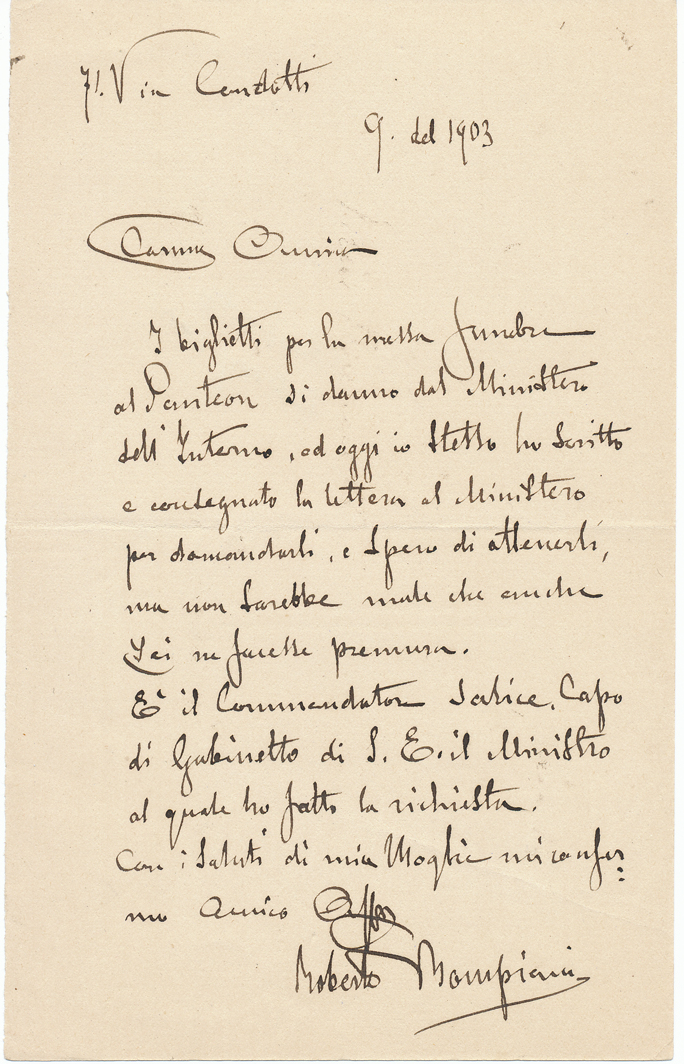 71. Via Condotti
9. del 1903
Carma Amica
I biglietti per la messa funebre
al Panteon si danno dal Ministero
dell'Interno, ed oggi io stesso ho scritto
e consegnato la lettera al Ministero
per domandarli, e spero di ottenerli,
ma non sarebbe male che anche
Lei ne facesse premura.
E' il Commendatore Salice, Capo
di Gabinetto di S. E. il Ministro
al quale ho fatto la richiesta.
Con i saluti di mia Moglie mi confer
mo Amico Aff
Roberto Bompiani